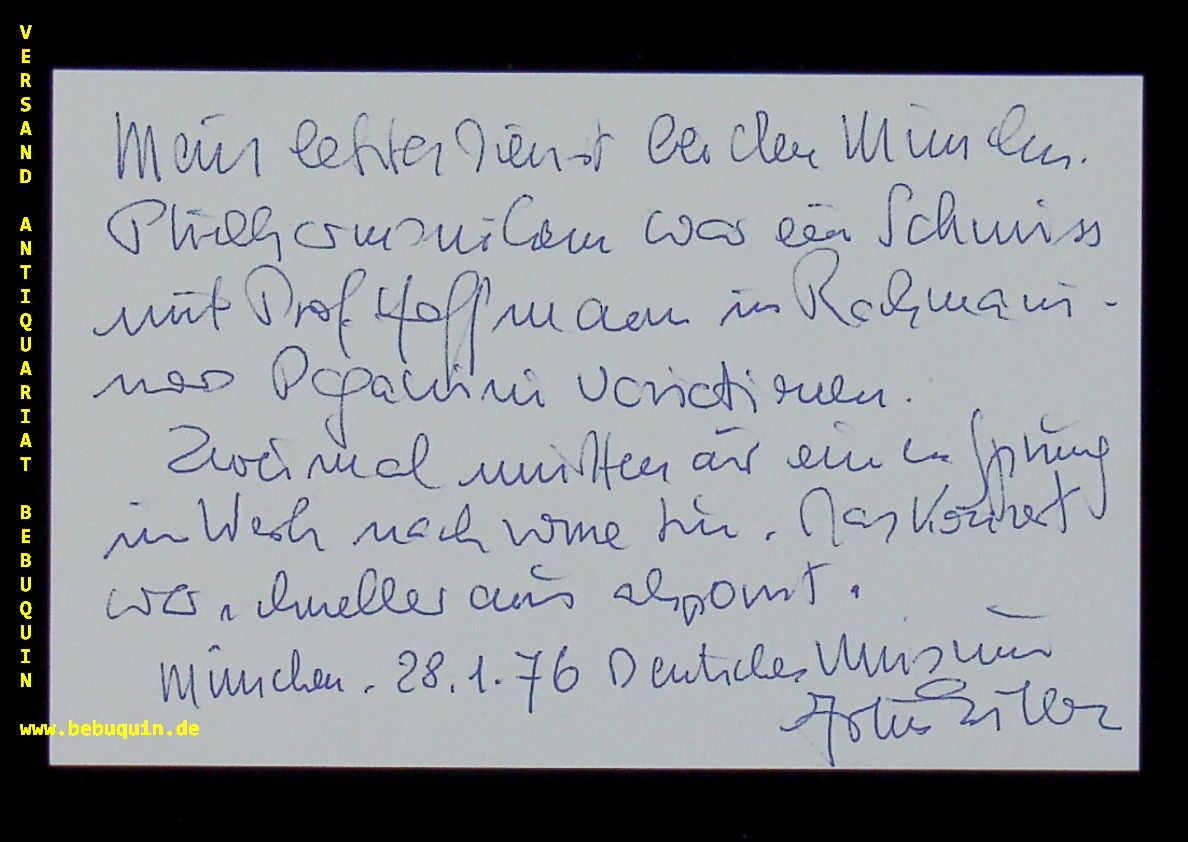 VERSAND ANTIQUARIAT BEBUQUIN
www.bebuquin.de
Mein letzter Dienst bei den München.
Philharmonikern war ein Schmiss
mit Prof. Hoffmann in Rachmani-
nows Paganini Variationen.
Zweimal mitten aus einem Sprung
im Werk nach vorne hin. Das Konzert
war schneller aus als
München. 28.1.76 Deutsches Museum